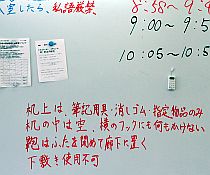 室したら、私語厳禁
8:58～9:4
9:00～9:5
10:05～10:5
机上は、筆記用具・消しゴム・指定物品のみ
机の中は空、横のフックにも何もかけない
鞄はふたを閉めて廊下に置く
下敷き使用不可